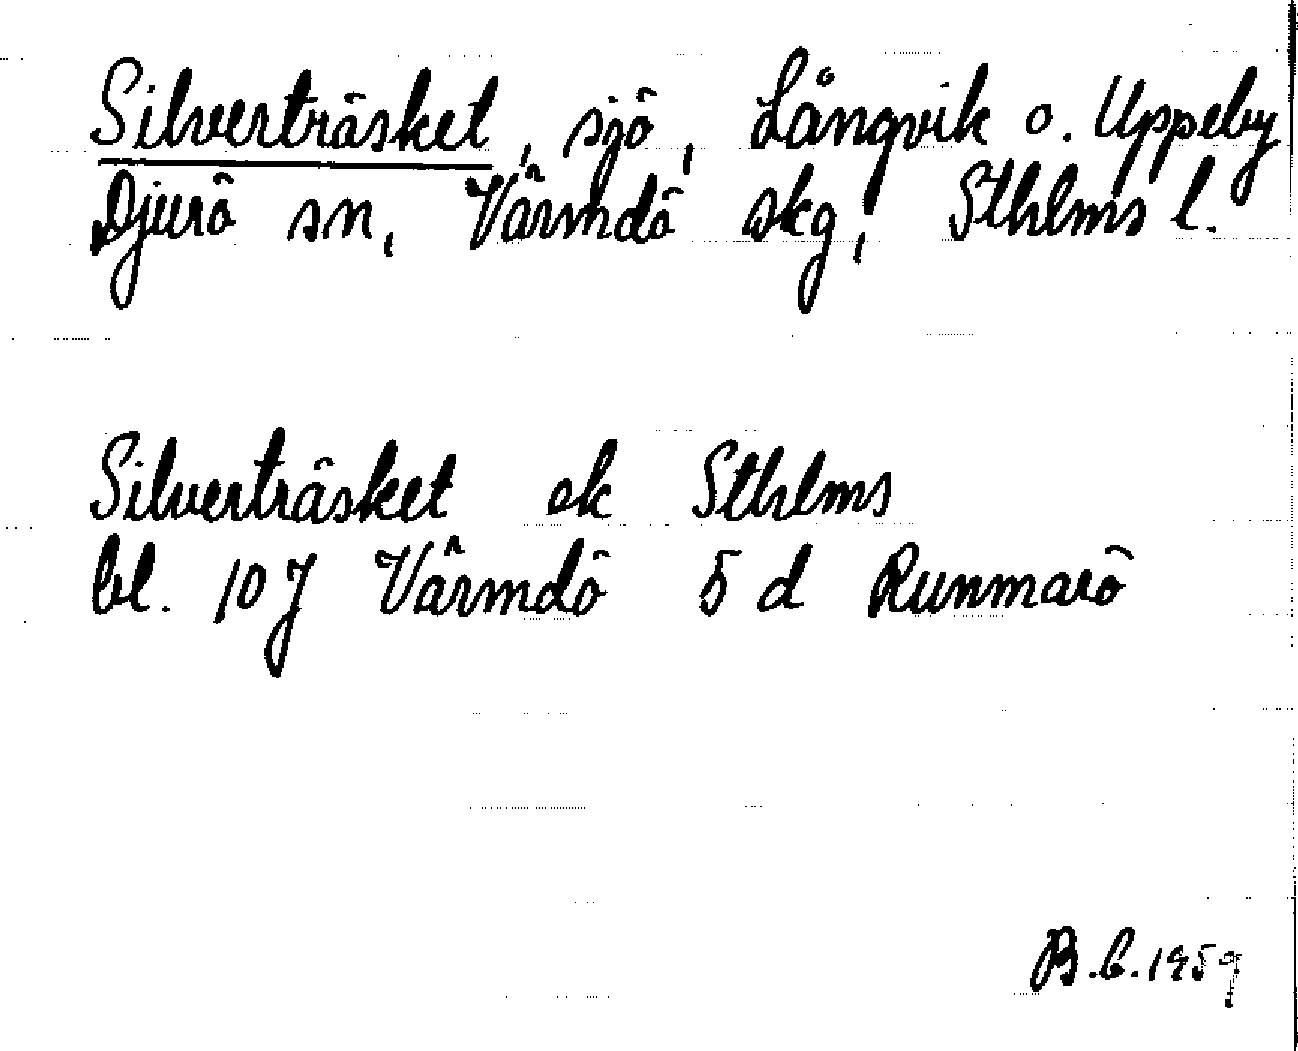 Silverträsket, sjö, Långvik o. Uppeby
Djurö sn, Värmdö skg, Sthlms l.
Silverträsket ek Sthlms
bl. 107 Värmdö 5 d Runmarö
B.C. 1959